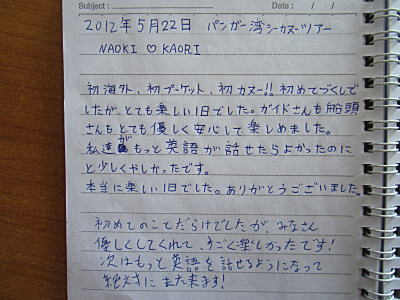 Subject :
Date : / /
2012年5月22日 パンガー湾シーカヌーツアー
NAOKI ♡ KAORI
初海外、初プーケット、初カヌー!! 初めてづくしで
したが、とても楽しい1日でした。ガイドさんも船頭
さんもとても優しく安心して楽しめました。
私達がもっと英語が話せたらよかったのに
と少しくやしかったです。
本当に楽しい1日でした。ありがとうございました。
初めてのことだらけでしたが、みなさん
優しくしてくれて、すごく楽しかったです!
次はもっと英語を話せるようになって
絶対にまた来ます!